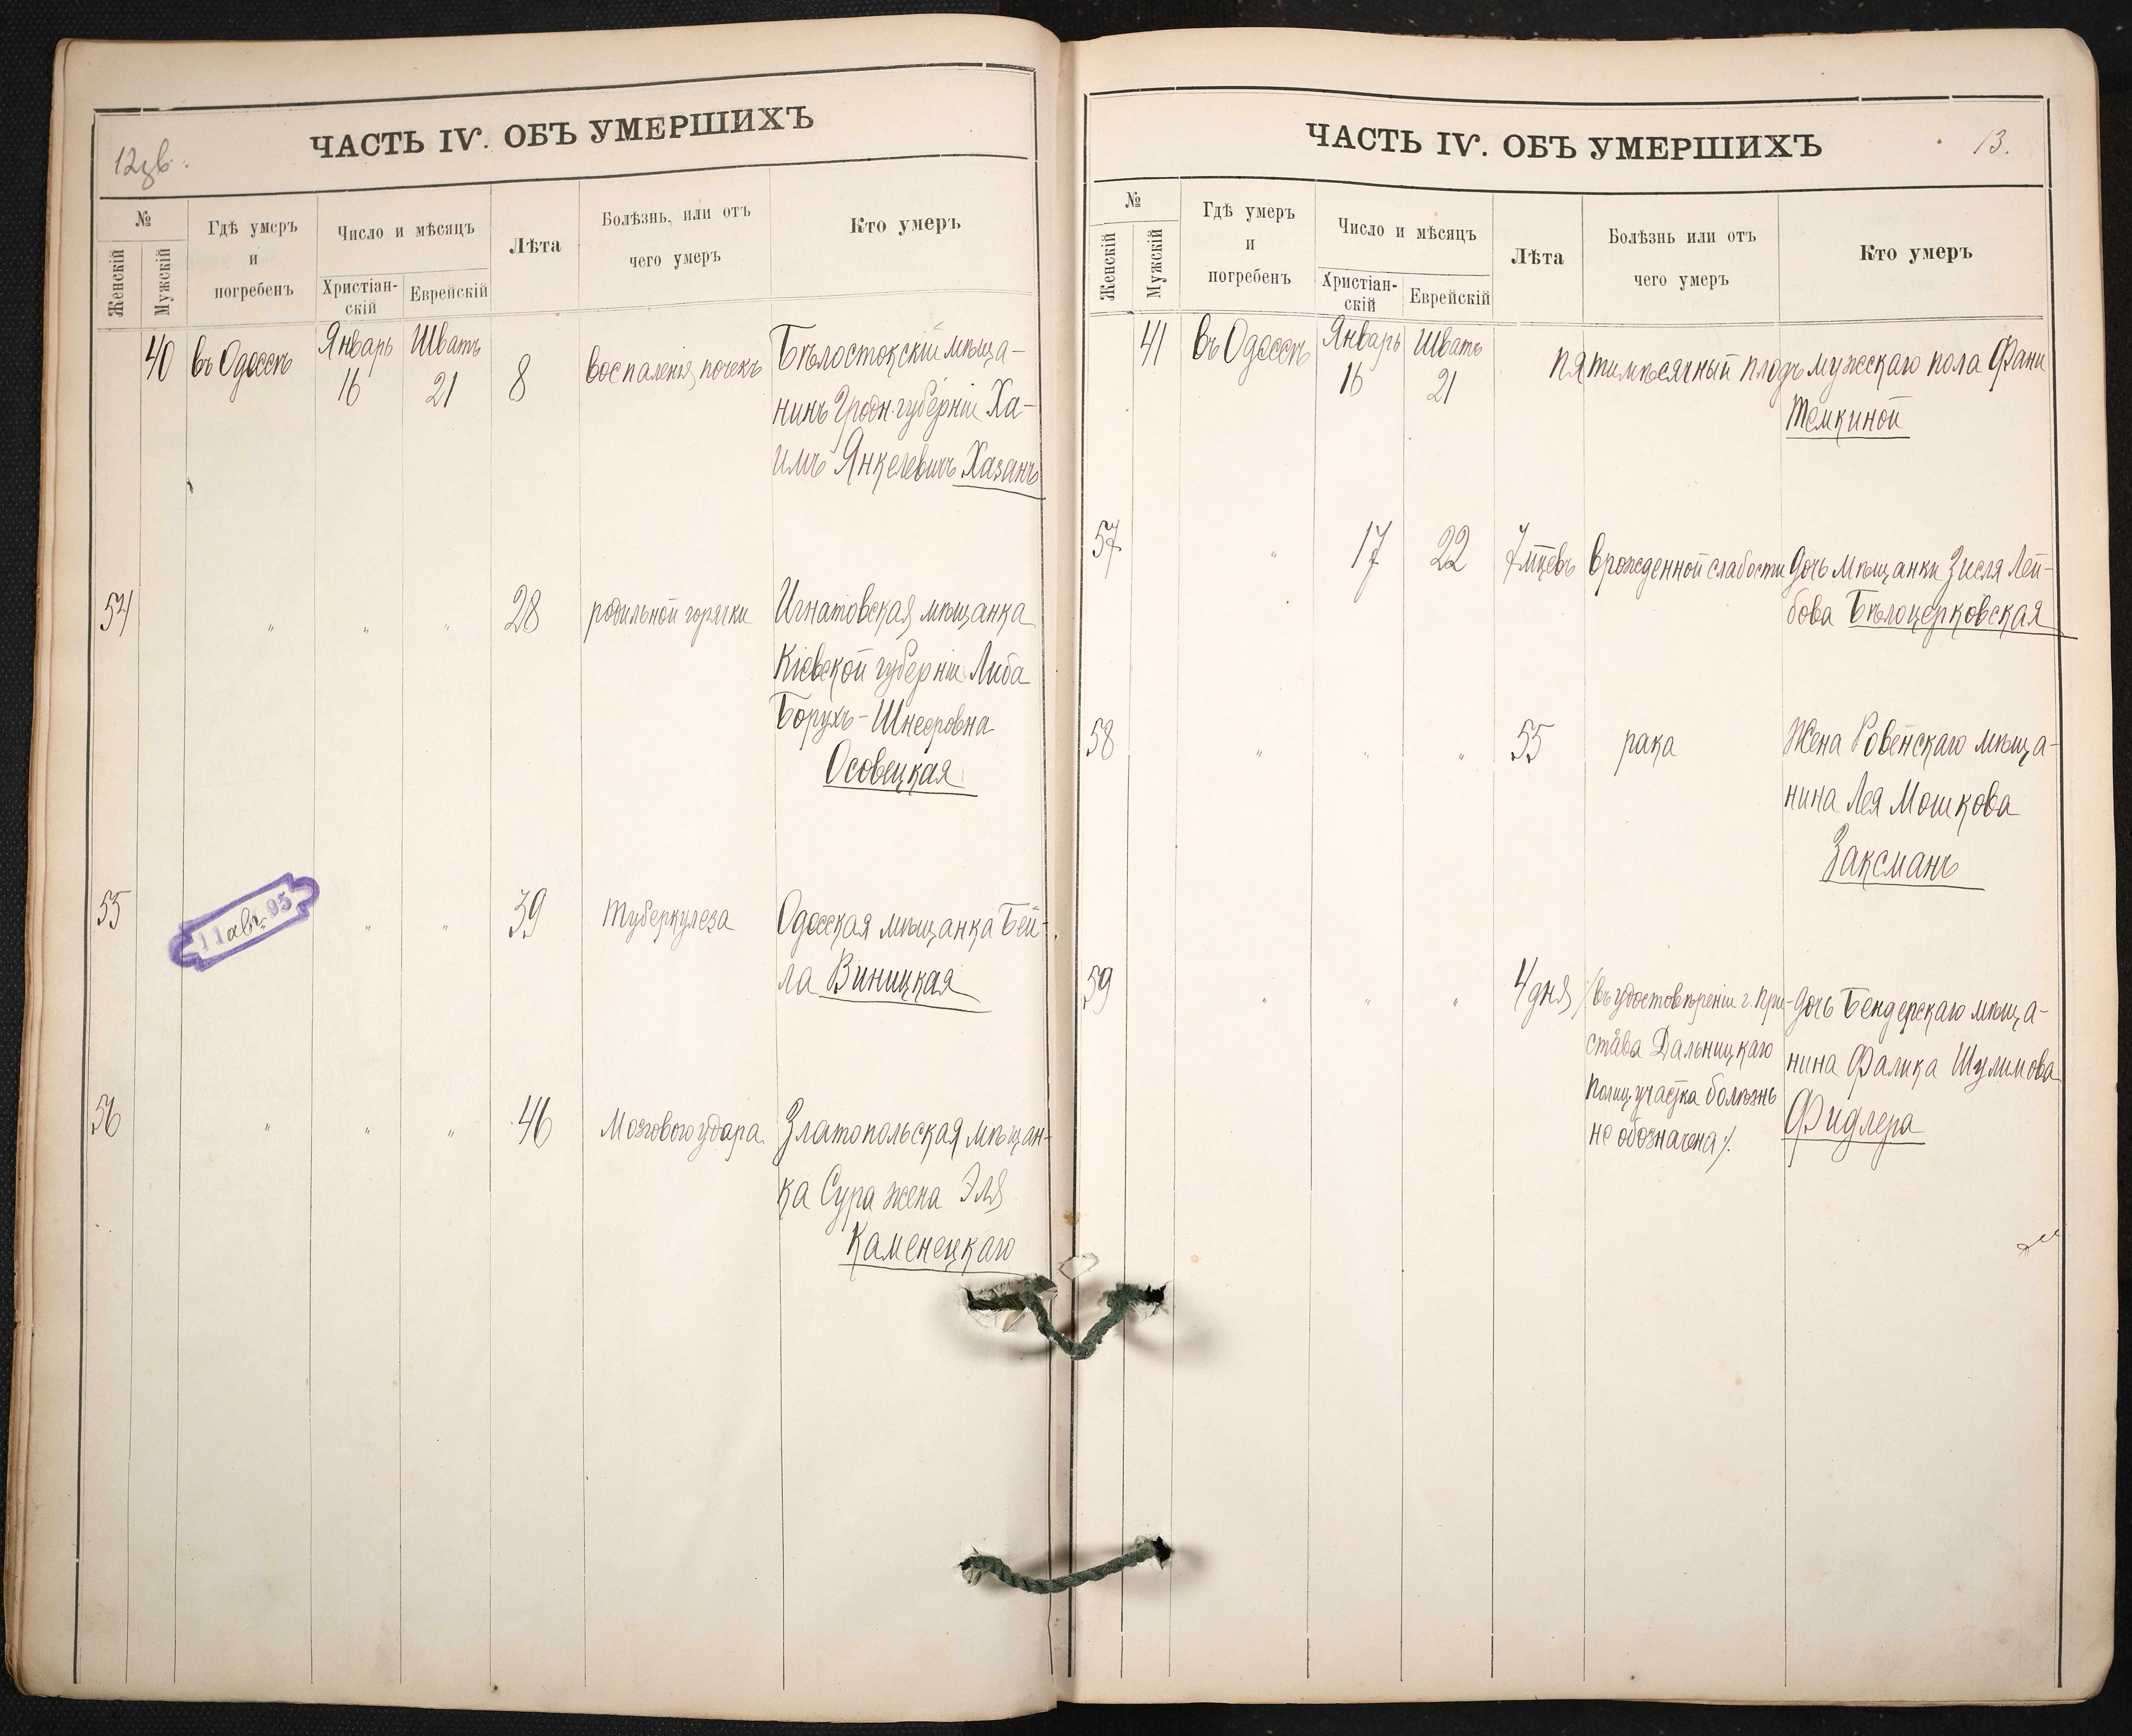 12 об.
ЧАСТЬ IV. ОБЪ УМЕРШИХЪ
№
Женскій
Мужскій
Гдѣ умеръ
и
погребенъ
Число и мѣсяцъ
Христіан-
скій
Еврейскій
Лѣта
Болѣзнь, или отъ
чего умеръ
Кто умеръ
40 въ Одессѣ Январь 16 Шватъ 21 8 воспаленія почекъ Бѣлостокскій мѣща-
нинъ Гродн. губерніи Ха-
имъ Янкелевичъ Хазанъ
54 " " " 28 родильной горячки Игнатовская мѣщанка
Кіевской губерніи Либа
Борухъ-Шнееровна
Осовецкая
55 11 авг. 95 " " 39 Туберкулеза Одесская мѣщанка Бей-
ла Виницкая
56 " " " 46 Мозгового удара Златопольская мѣщан-
ка Сура жена Эля
Каменецкаго
ЧАСТЬ IV. ОБЪ УМЕРШИХЪ
13.
№
Женскій
Мужскій
Гдѣ умеръ
и
погребенъ
Число и мѣсяцъ
Христіан-
скій
Еврейскій
Лѣта
Болѣзнь или отъ
чего умеръ
Кто умеръ
41 въ Одессѣ Январь 16 Шватъ 21 пятимѣсячный плодъ мужскаго пола Фани
Темкиной
57 " 17 22 7 мцевъ врожденной слабости дочь мѣщанки Зисля Лей-
бова Бѣлоцерковская
58 " " " 55 рака Жена Ровенскаго мѣща-
нина Лея Мошкова
Заксманъ
59 " " " 4 дня /въ удостовѣреніи г. При-
става Дальницкаго
Полиц. участка болѣзнь
не обозначена/.
дочь Бендерскаго мѣща-
нина Фалика Шулимова
Фидлера